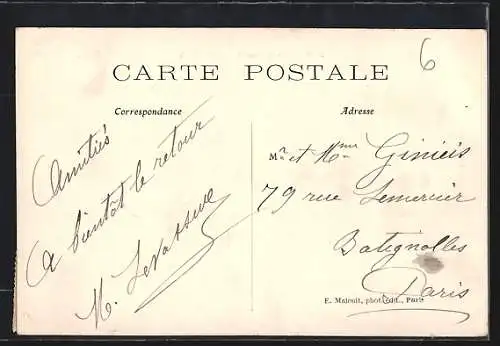 6
CARTE POSTALE
Correspondance
Amitiés
A bientôt le retour
M. Levasseur
Adresse
Mr et Mme
79 rue Lemercier
Batignolles
Paris
E. Malcuit, phot. édit., Paris